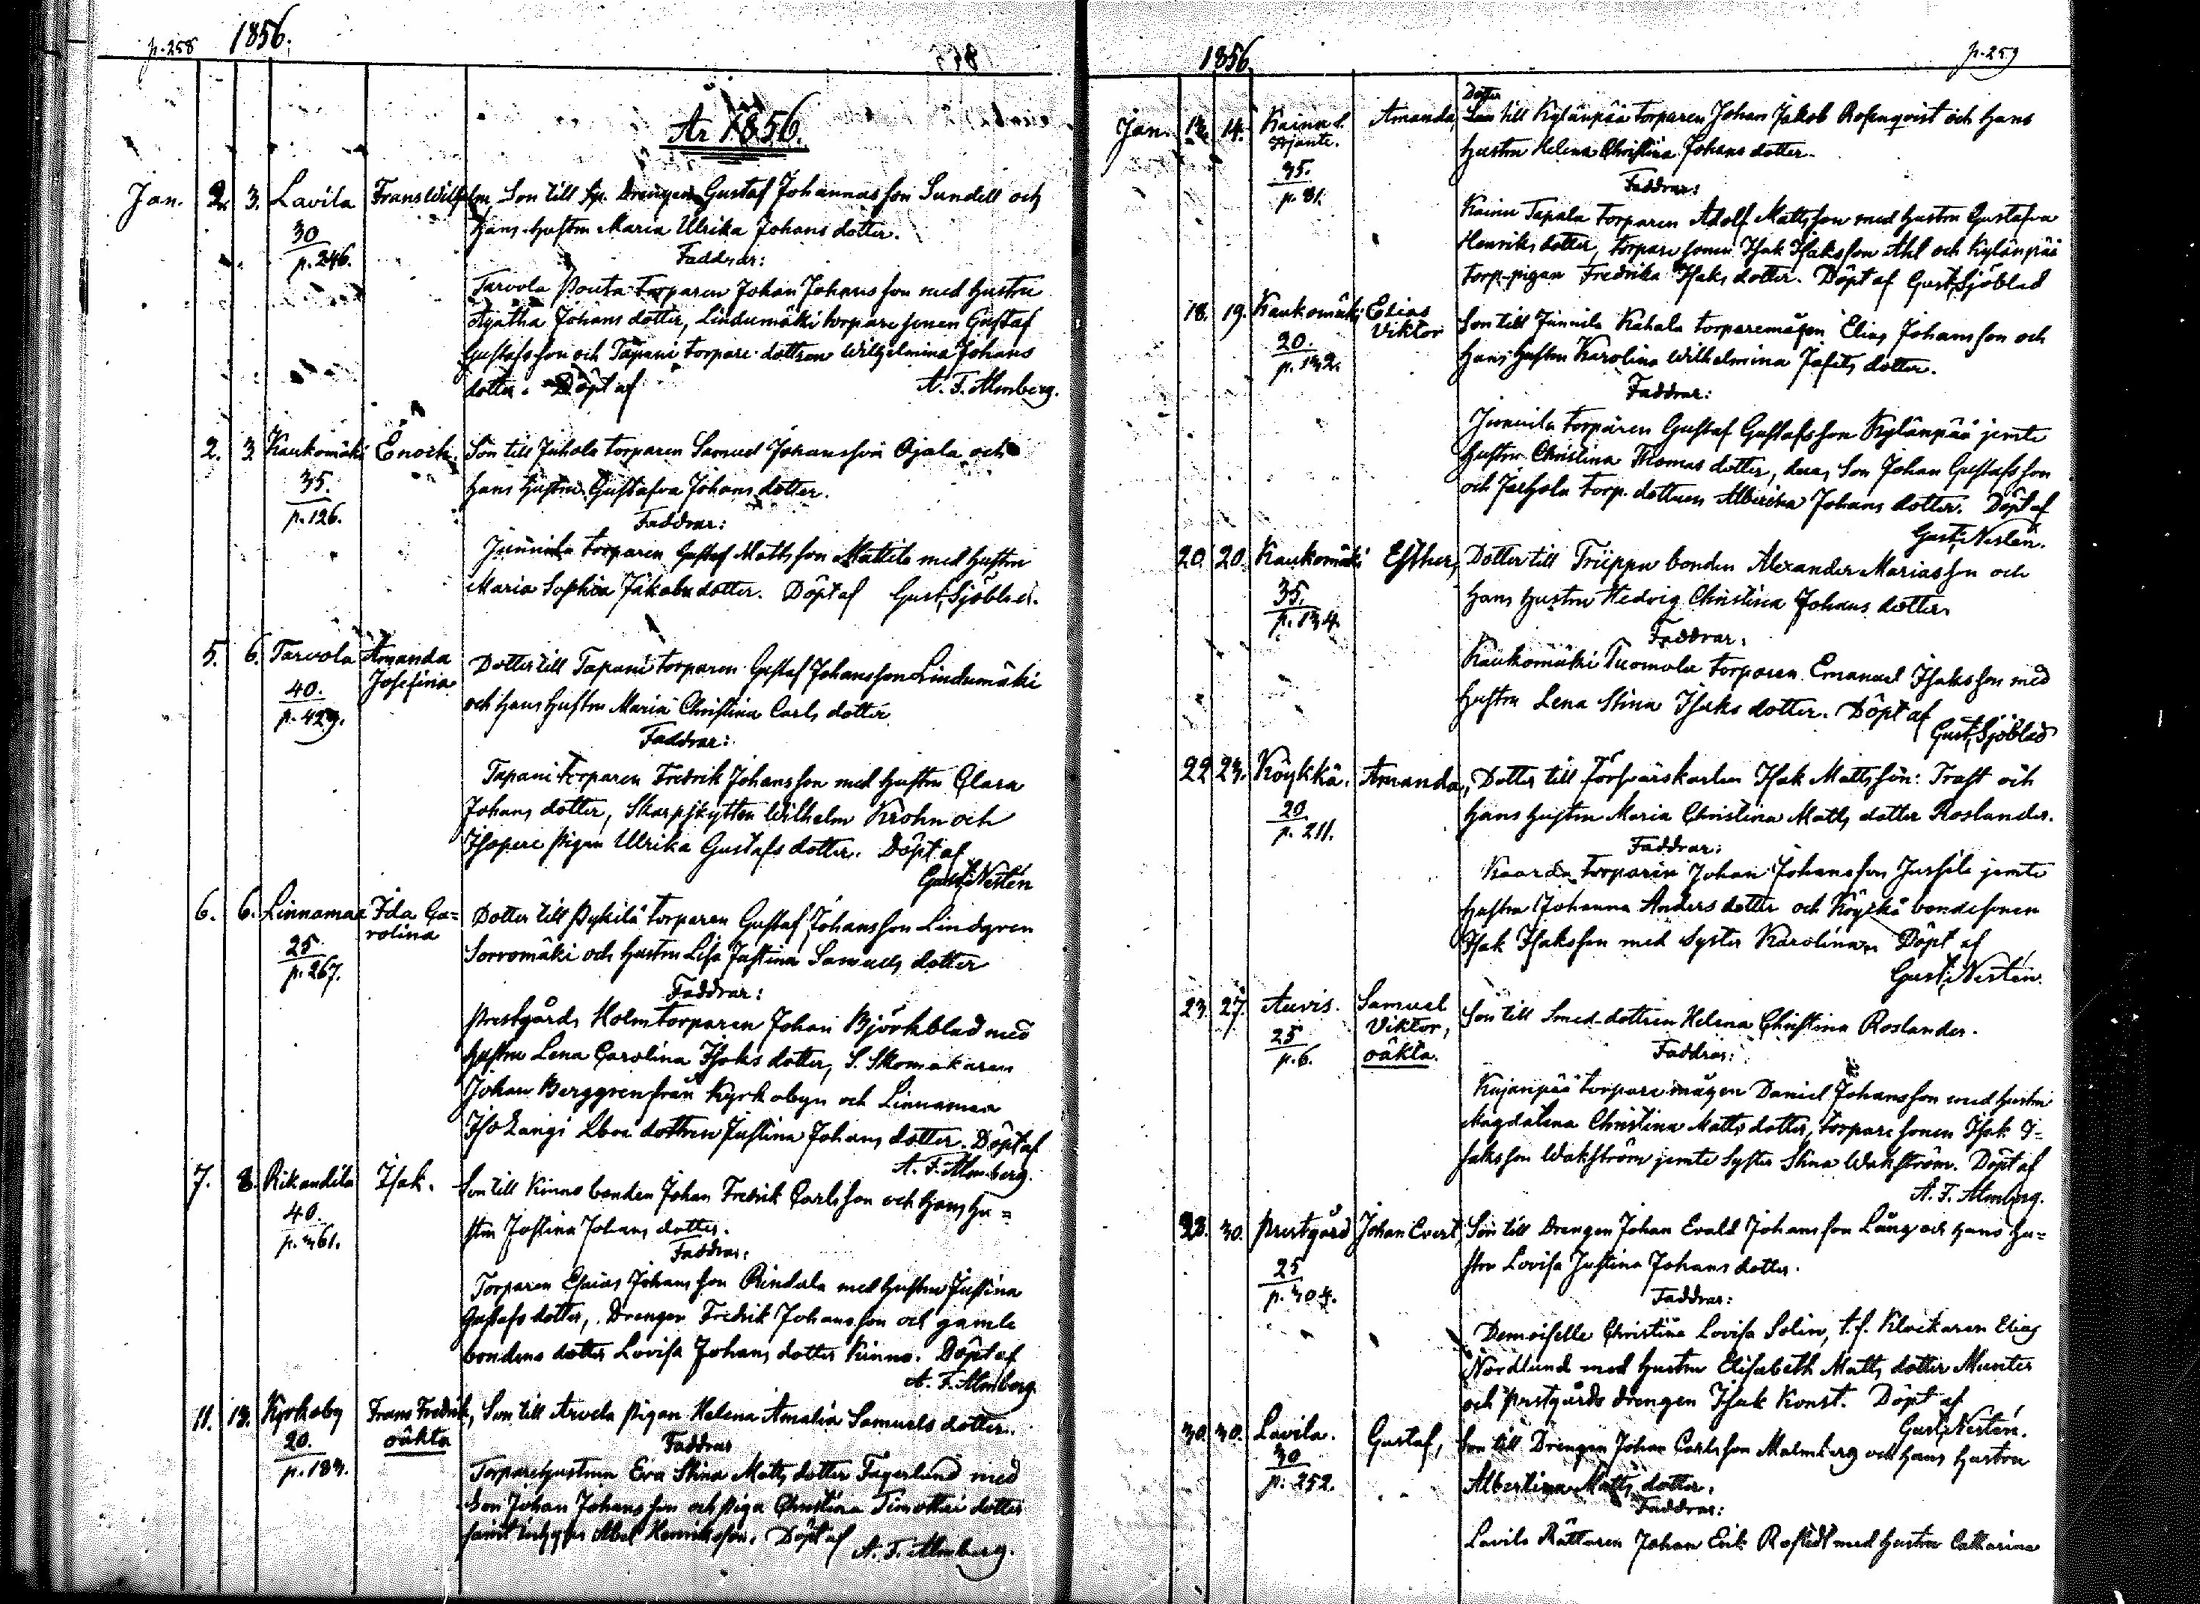 p. 258
1856.
År 1856.
Jan. 2. 3. Lavila Frans Wilhelm, Son till Drengen Gustaf Johannasson Sundell och
30 hans hustru Maria Ulrika Johans dotter.
p. 246. Faddrar:
Tarvola Pouta Torparen Johan Johansson med hustru
Agatha Johans dotter, Lindumäki torpare sonen Gustaf
Gustafsson och Tapani torpare dottren Wilhelmina Johans
dotter. Döpt af A. F. Almberg.
2. 3. Kaukomäki Enock. Son till Juhola torparen Samuel Johansson Ojala och
35. hans hustru Gustafva Johans dotter.
p. 126. Faddrar:
Junnila torparen Gustaf Mattsson Mattila med hustru
Maria Sophia Jakobs dotter. Döpt af Gust. Sjöblad.
5. 6. Tarvola Amanda Dotter till Tapani torparen Gustaf Johansson Lindumäki
40. Josefina och hans hustru Maria Christina Carls dotter.
p. 429. Faddrar:
Tapani torparen Fredrik Johansson med hustru Clara
Johans dotter, Skarpskytten Wilhelm Krohn och
Isopere pigan Ulrika Gustafs dotter. Döpt af
Gust. Nestén
6. 6. Linnamaa Ida Ca= Dotter till Pykilä torparen Gustaf Johansson Lindgren
25 rolina Sorromäki och hustru Lisa Justina Samuels dotter
p. 267. Faddrar:
Prestgårds Holmtorparen Johan Björkblad med
hustru Lena Carolina Isaks dotter, S. Skomakaren
Johan Berggren från Kyrkobyn och Linnamaa
Iso Langi dottren Justina Johans dotter. Döpt af
A. F. Almberg.
7. 8. Rikandila Isak. Son till Kinno bonden Johan Fredrik Carlsson och hans hu=
40. stru Justina Johans dotter.
p. 361. Faddrar:
Torparen Esaias Johansson Rindala med hustru Justina
Gustafs dotter, Drengen Fredrik Johansson och gamle
bondens dotter Lovisa Johans dotter Kinno. Döpt af
A. F. Almberg.
11. 13. Kyrkoby Frans Fredrik, Son till Arvela pigan Helena Amalia Samuels dotter.
20. oäkta Faddrar
p. 183. Torparehustrun Eva Stina Matts dotter Fagerlund med
Son Johan Johansson och piga Christina Timothei dotter
samt Abel Henriksson. Döpt af A. F. Almberg.
1856.
p. 259
Dotter
Jan. 13. 14. Kaina Amanda, Son till Kylänpää torparen Johan Jakob Rosenqvist och hans
hustru Helena Christina Johans dotter.
35. Faddrar:
p. 81. Kainu Tapala torparen Adolf Mattsson med hustru Gustafva
Henriks dotter, torpare sonen Isak Isaksson Ahl och Kylänpää
torp-pigan Fredrika Isaks dotter. Döpt af Gust. Sjöblad
18. 19. Kaukomäki Elias Son till Junnila Kahala torparemågen Elias Johansson och
20. Viktor hans hustru Karolina Wilhelmina Jafets dotter.
p. 132. Faddrar:
Junnila torparen Gustaf Gustafsson Kylänpää jemte
hustru Christina Thomas dotter, deras Son Johan Gustafsson
och torp. dottren Albertina Johans dotter. Döpt af
Gust. Nestén.
20. 20. Kaukomäki Esther, Dotter till Trüppu bonden Alexander Mariasson och
35. hans hustru Hedvig Christina Johans dotter.
p. 134. Faddrar:
Kaukomäki Tuomola torparen Emanuel Isaksson med
hustru Lena Stina Isaks dotter. Döpt af
Gust. Sjöblad
22. 23. Köykkä. Amanda, Dotter till Försvarskarlen Isak Mattsson Trast och
20 hans hustru Maria Christina Matts dotter Roslander.
p. 211. Faddrar:
Kaarda torparen Johan Johansson Jussila jemte
hustru Johanna Anders dotter och Köykkä bondesonen
Isak Isaksson med Syster Karolina. Döpt af
Gust. Nestén.
23. 27. Auvis. Samuel Son till Smed-dottren Helena Christina Roslander.
25 Viktor,
p. 6. oäkta. Faddrar:
Kujanpää torpare mågen Daniel Johansson med hustru
Magdalena Christina Matts dotter, torpare sonen Isak I=
saksson Wakström jemte Syster Stina Wakström. Döpt af
A. F. Almberg.
28. 30. Prestgård Johan Evert, Son till Drengen Johan Evald Johansson Lång och hans hu=
25 stru Lovisa Justina Johans dotter.
p. 304. Faddrar:
Demoiselle Christina Lovisa Solin, t.f. Klockaren Elias
Nordlund med hustru Elisabeth Matts dotter Munter
och Prestgårds drengen Isak Konst. Döpt af
Gust. Nestén.
30. 30. Lavila. Gustaf, Son till Drengen Johan Carlsson Malmberg och hans hustru
30 Albertina Matts dotter.
p. 252. Faddrar:
Lavila Rättaren Johan Erik Rostedt med hustru Catharina